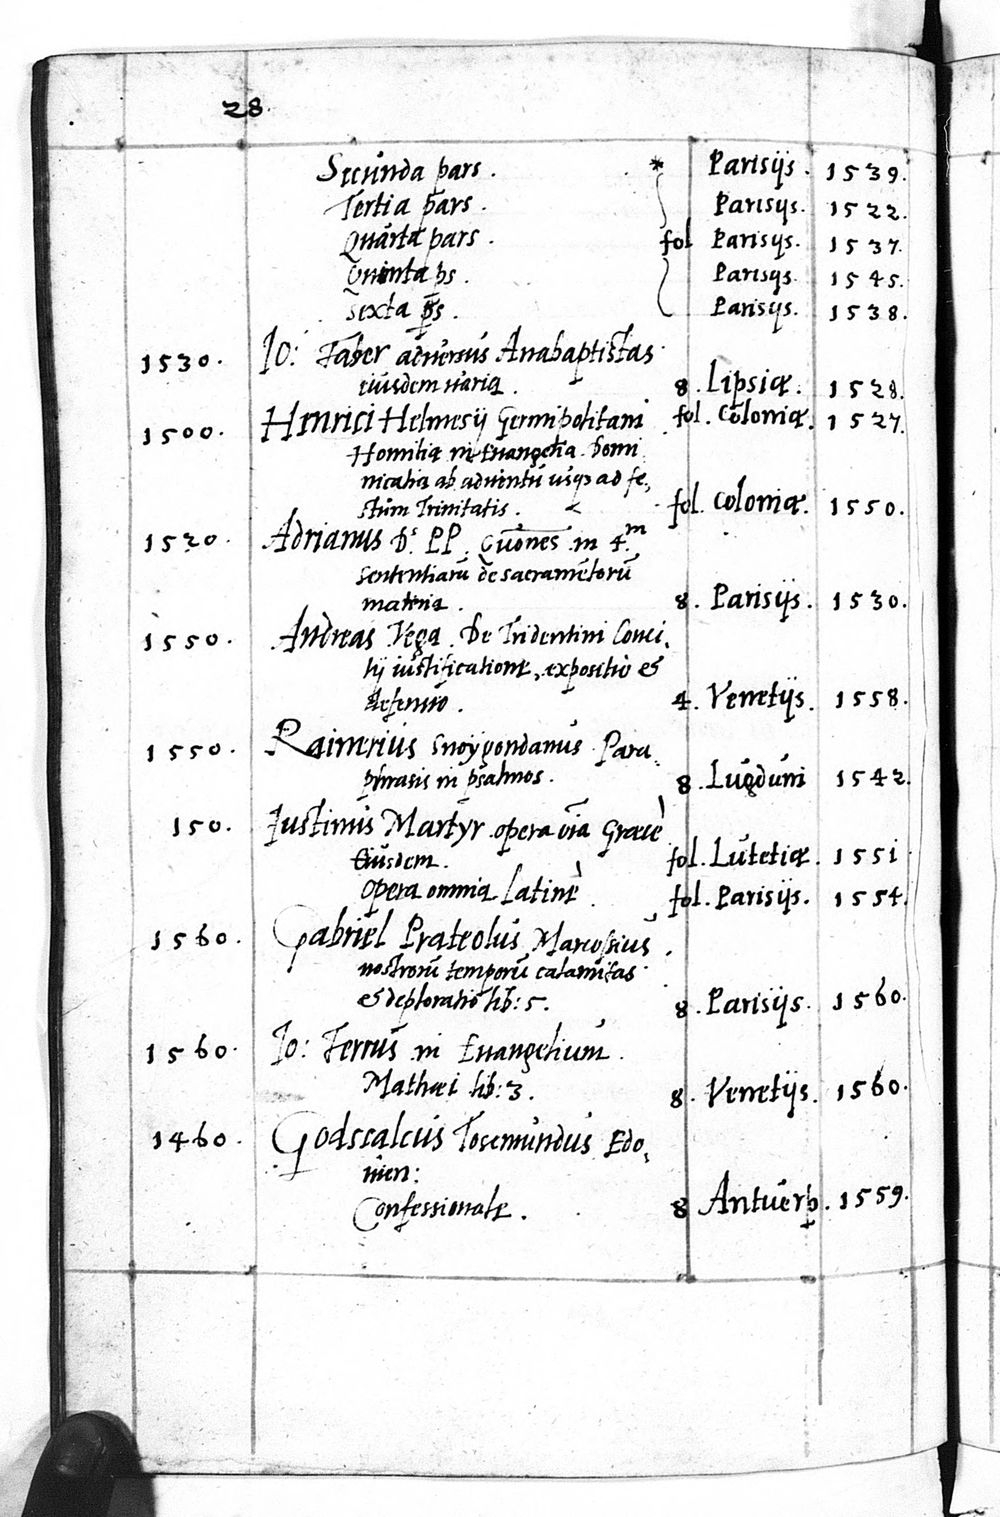 28.
Secunda pars . * Parisijs . 1539.
Tertia pars . Parisijs . 1522.
Quarta pars . fol Parisijs . 1537.
Quinta ps . Parisijs . 1545.
Sexta ps . Parisijs . 1538.
1530. Io: Faber aduersus Anabaptistas
eiusdem varia . 8 . Lipsiæ . 1528.
1500. Henrici Helmesij Germipolitani fol . Coloniæ . 1527.
Homiliæ in Euangelia Domi
nicalia ab aduentū usq3 ad fe,
stum Trinitatis . fol . Coloniæ . 1550.
1520. Adrianus D.s PP . Quōnes in 4.m
sententiarū de sacramētorū
materia . 8 . Parisijs . 1530.
1550. Andreas Vega . De Tridentini Conci,
lij iustificatione, expositio &
defensio . 4 . Venetijs . 1558.
1550. Raimerius Snoijgondanus Para,
phrasis in psalmos . 8 . Lugduni 1542.
150. Iustinus Martyr opera oīa Græcè
Eiusdem . fol . Lutetiæ . 1551
opera omnia Latinè . fol . Parisijs . 1554.
1560. Gabriel Prateolus Marcossius .
nostrorū temporū calamitas
& deploratio lib: 5. 8 . Parisijs . 1560.
1560. Io: Ferrus in Euangelium .
Mathæi lib: 3 . 8 . Venetijs . 1560.
1460. Godscalcus Rosemundus Edo,
nien:
Confessionale . 8 Antuerp . 1559.